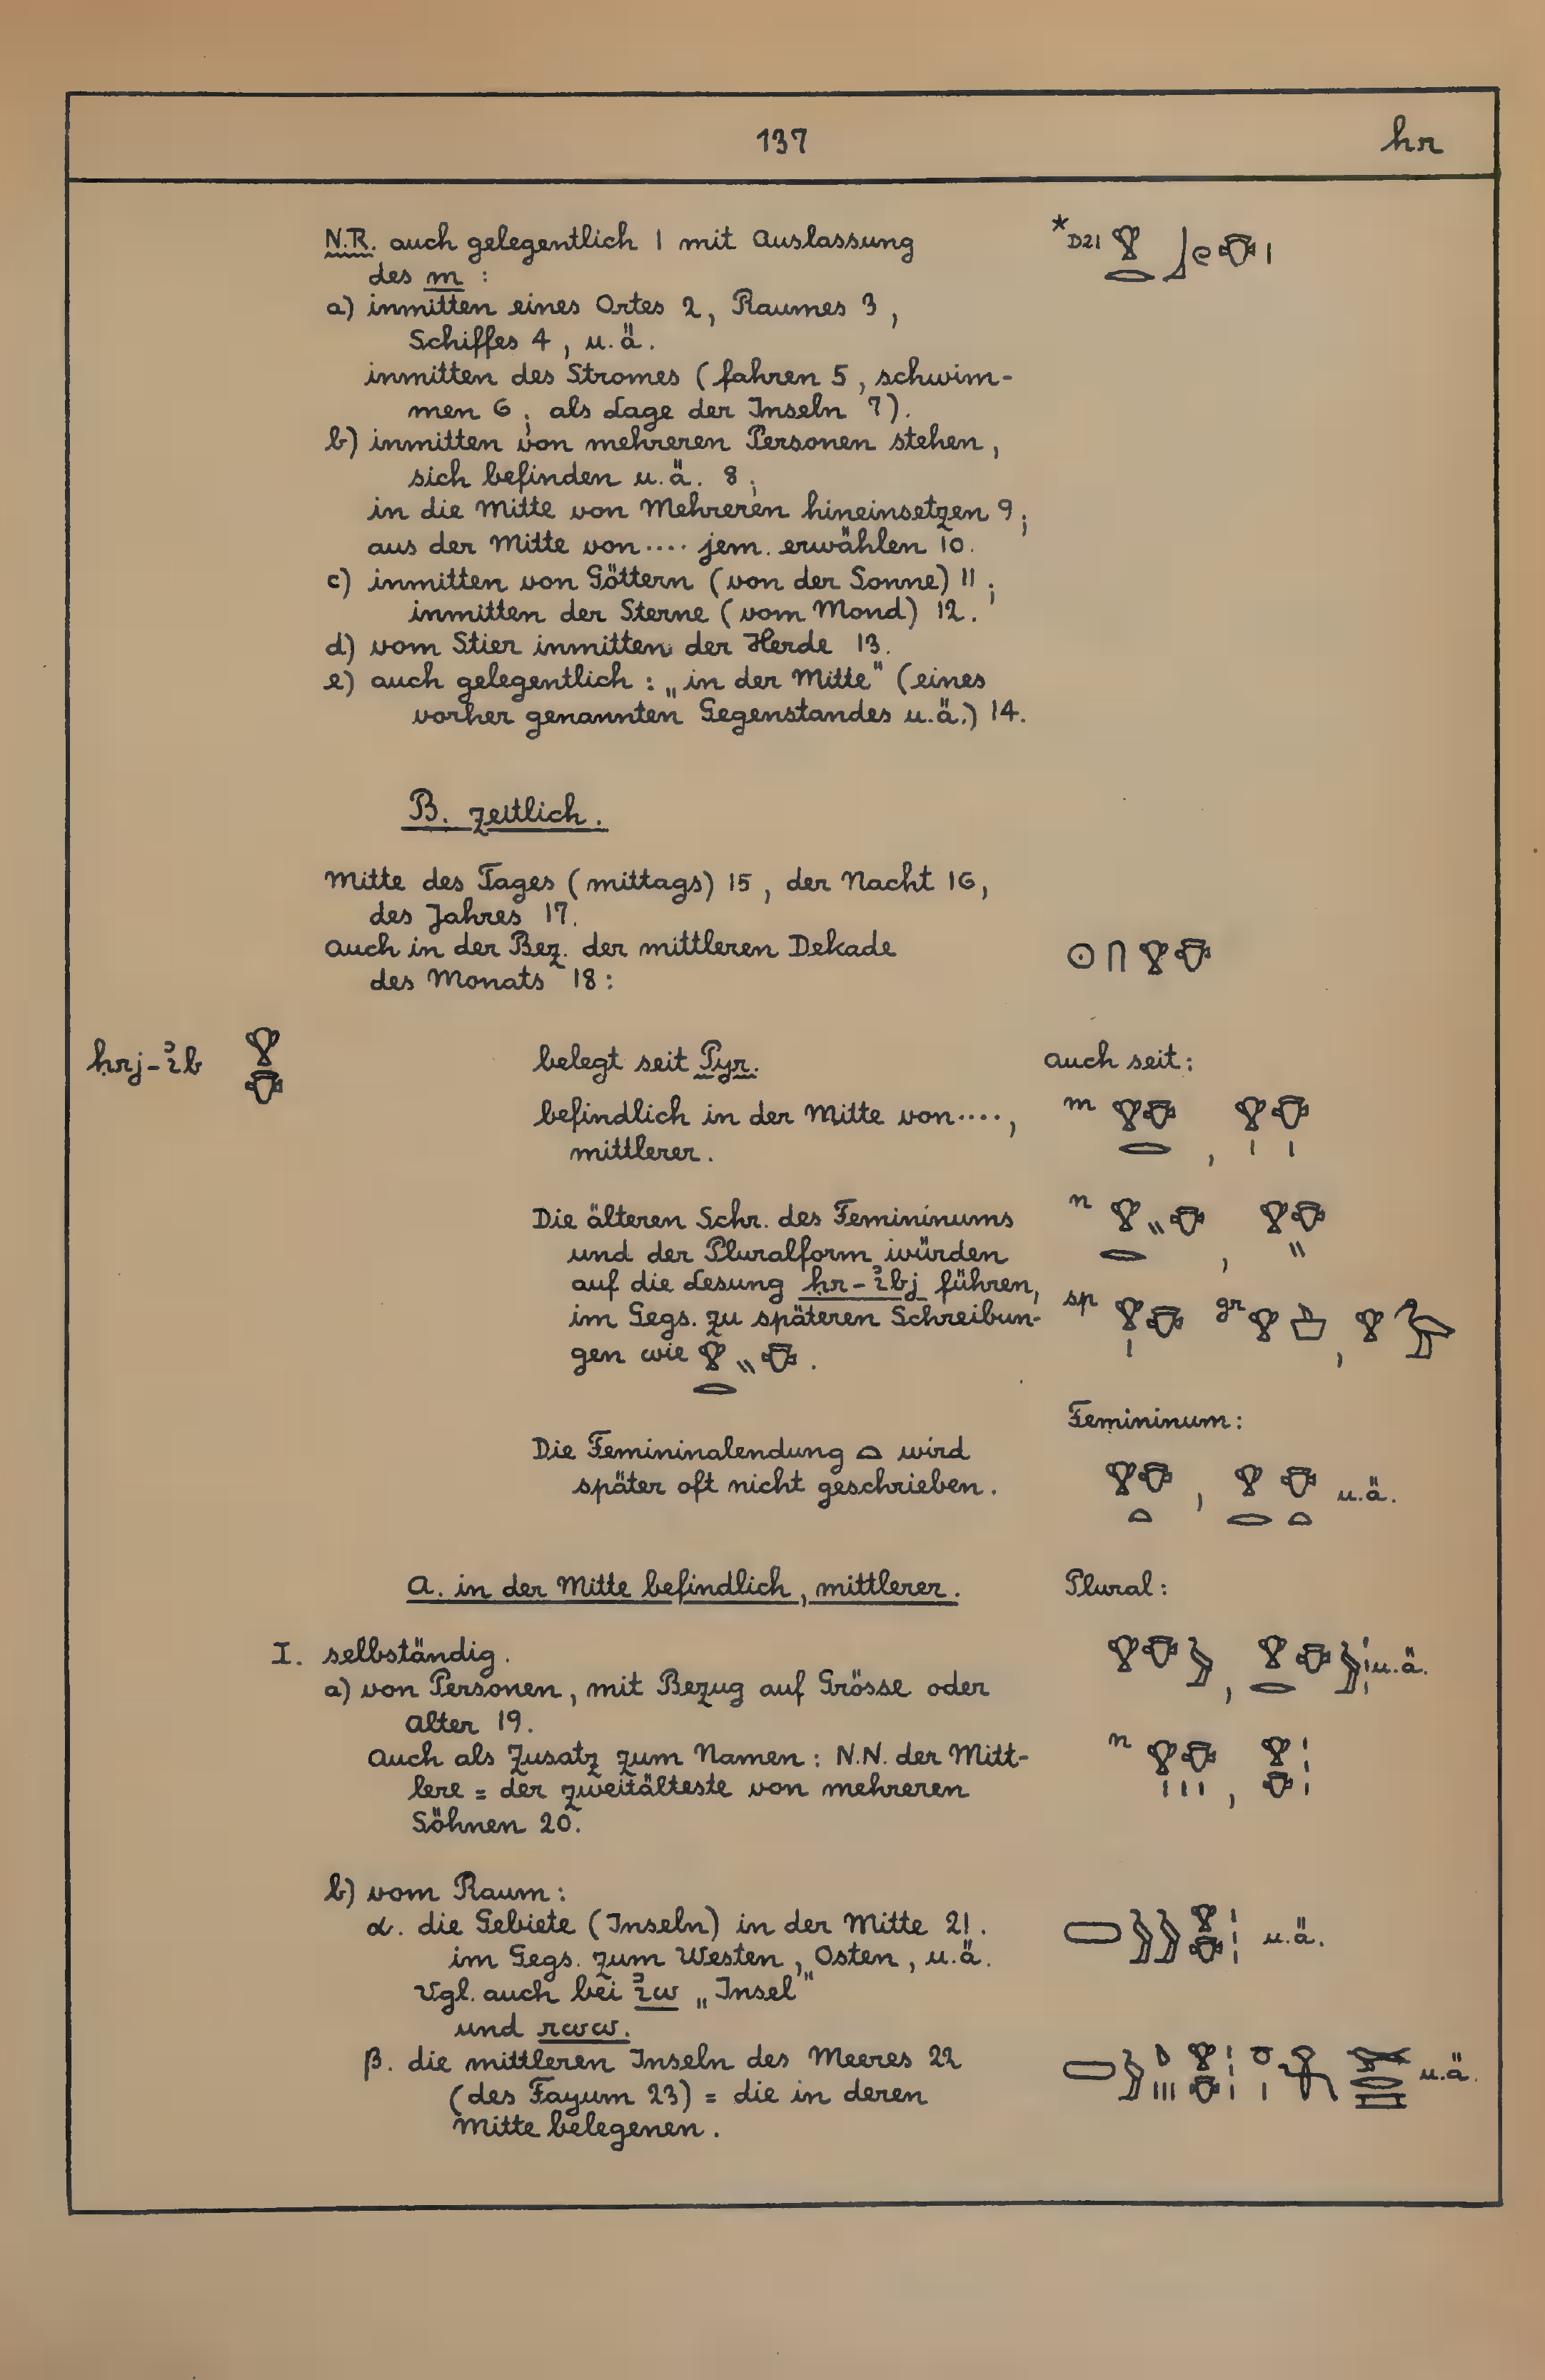 137 ḥr
N.R. auch gelegentlich 1 mit Auslassung
des m :
*D21
a) inmitten eines Ortes 2, Raumes 3,
Schiffes 4, u.ä.
inmitten des Stromes (fahren 5, schwim-
men 6; als Lage der Inseln 7).
b) inmitten von mehreren Personen stehen,
sich befinden u.ä. 8;
in die Mitte von Mehreren hineinsetzen 9;
aus der Mitte von.... jem. erwählen 10.
c) inmitten von Göttern (von der Sonne) 11;
inmitten der Sterne (vom Mond) 12.
d) vom Stier inmitten der Herde 13.
e) auch gelegentlich: „in der Mitte" (eines
vorher genannten Gegenstandes u.ä.) 14.
B. zeitlich.
Mitte des Tages (mittags) 15, der Nacht 16,
des Jahres 17.
Auch in der Bez. der mittleren Dekade
des Monats 18:
ḥrj-ỉb
belegt seit Pyr.
befindlich in der Mitte von....,
mittlerer.
Die älteren Schr. des Femininums
und der Pluralform würden
auf die Lesung ḥr-ỉbj führen,
im Gegs. zu späteren Schreibun-
gen wie
Die Femininalendung wird
später oft nicht geschrieben.
auch seit:
m
n
sp gr
Femininum:
u.ä.
Plural:
u.ä.
n
A. in der Mitte befindlich, mittlerer.
I. selbständig.
a) von Personen, mit Bezug auf Grösse oder
Alter 19.
Auch als Zusatz zum Namen: N.N. der Mitt-
lere = der zweitälteste von mehreren
Söhnen 20.
b) vom Raum:
α. die Gebiete (Inseln) in der Mitte 21.
u.ä.
im Gegs. zum Westen, Osten, u.ä.
Vgl. auch bei ỉw „Insel"
und rww.
β. die mittleren Inseln des Meeres 22
u.ä.
(des Fayum 23) = die in deren
Mitte belegenen.